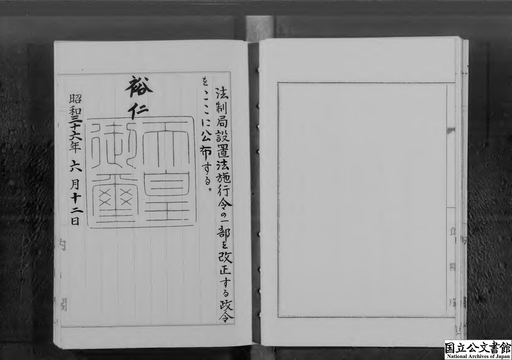 法制局設置法施行令の一部を改正する政令
をここに公布する。
裕仁
天皇
御璽
昭和三十六年六月十二日
国立公文書館
National Archives of Japan